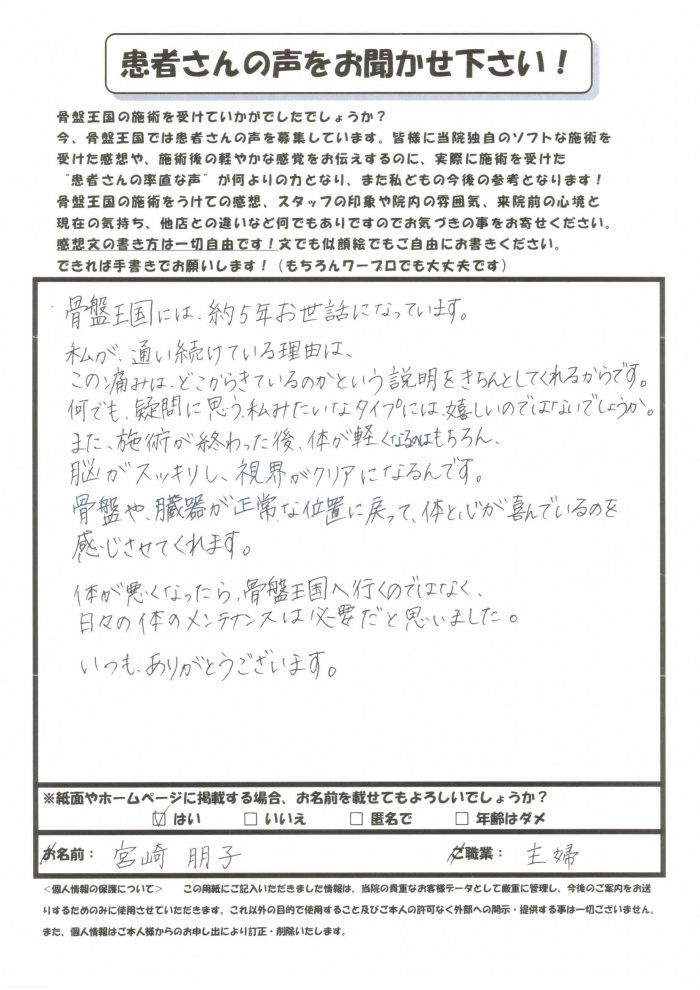 患者さんの声をお聞かせ下さい！
骨盤王国の施術を受けていかがでしたでしょうか？
今、骨盤王国では患者さんの声を募集しています。皆様に当院独自のソフトな施術を
受けた感想や、施術後の軽やかな感覚をお伝えするのに、実際に施術を受けた
"患者さんの率直な声"が何よりの力となり、また私どもの今後の参考となります！
骨盤王国の施術をうけての感想、スタッフの印象や院内の雰囲気、来院前の心境と
現在の気持ち、他店との違いなど何でもありですのでお気づきの事をお寄せください。
感想文の書き方は一切自由です！文でも似顔絵でもご自由にお書きください。
できれば手書きでお願いします！（もちろんワープロでも大丈夫です）
骨盤王国には、約5年お世話になっています。
私が、通い続けている理由は、
この痛みは、どこからきているのかという説明をきちんとしてくれるからです。
何でも、疑問に思う、私みたいなタイプには、嬉しいのではないでしょうか。
また、施術が終わった後、体が軽くなるのはもちろん、
脳がスッキリし、視界がクリアになるんです。
骨盤や、臓器が正常な位置に戻って、体と心が喜んでいるのを
感じさせてくれます。
体が悪くなったら、骨盤王国へ行くのではなく、
日々の体のメンテナンスは必要だと思いました。
いつも、ありがとうございます。
※紙面やホームページに掲載する場合、お名前を載せてもよろしいでしょうか？
☑ はい □ いいえ □ 匿名で □ 年齢はダメ
お名前： 宮崎 朋子 ご職業： 主婦
＜個人情報の保護について＞ この用紙にご記入いただきました情報は、当院の貴重なお客様データとして厳重に管理し、今後のご案内をお送
りするためのみに使用させていただきます。これ以外の目的で使用すること及びご本人の許可なく外部への開示・提供する事は一切ございません。
また、個人情報はご本人様からのお申し出により訂正・削除いたします。